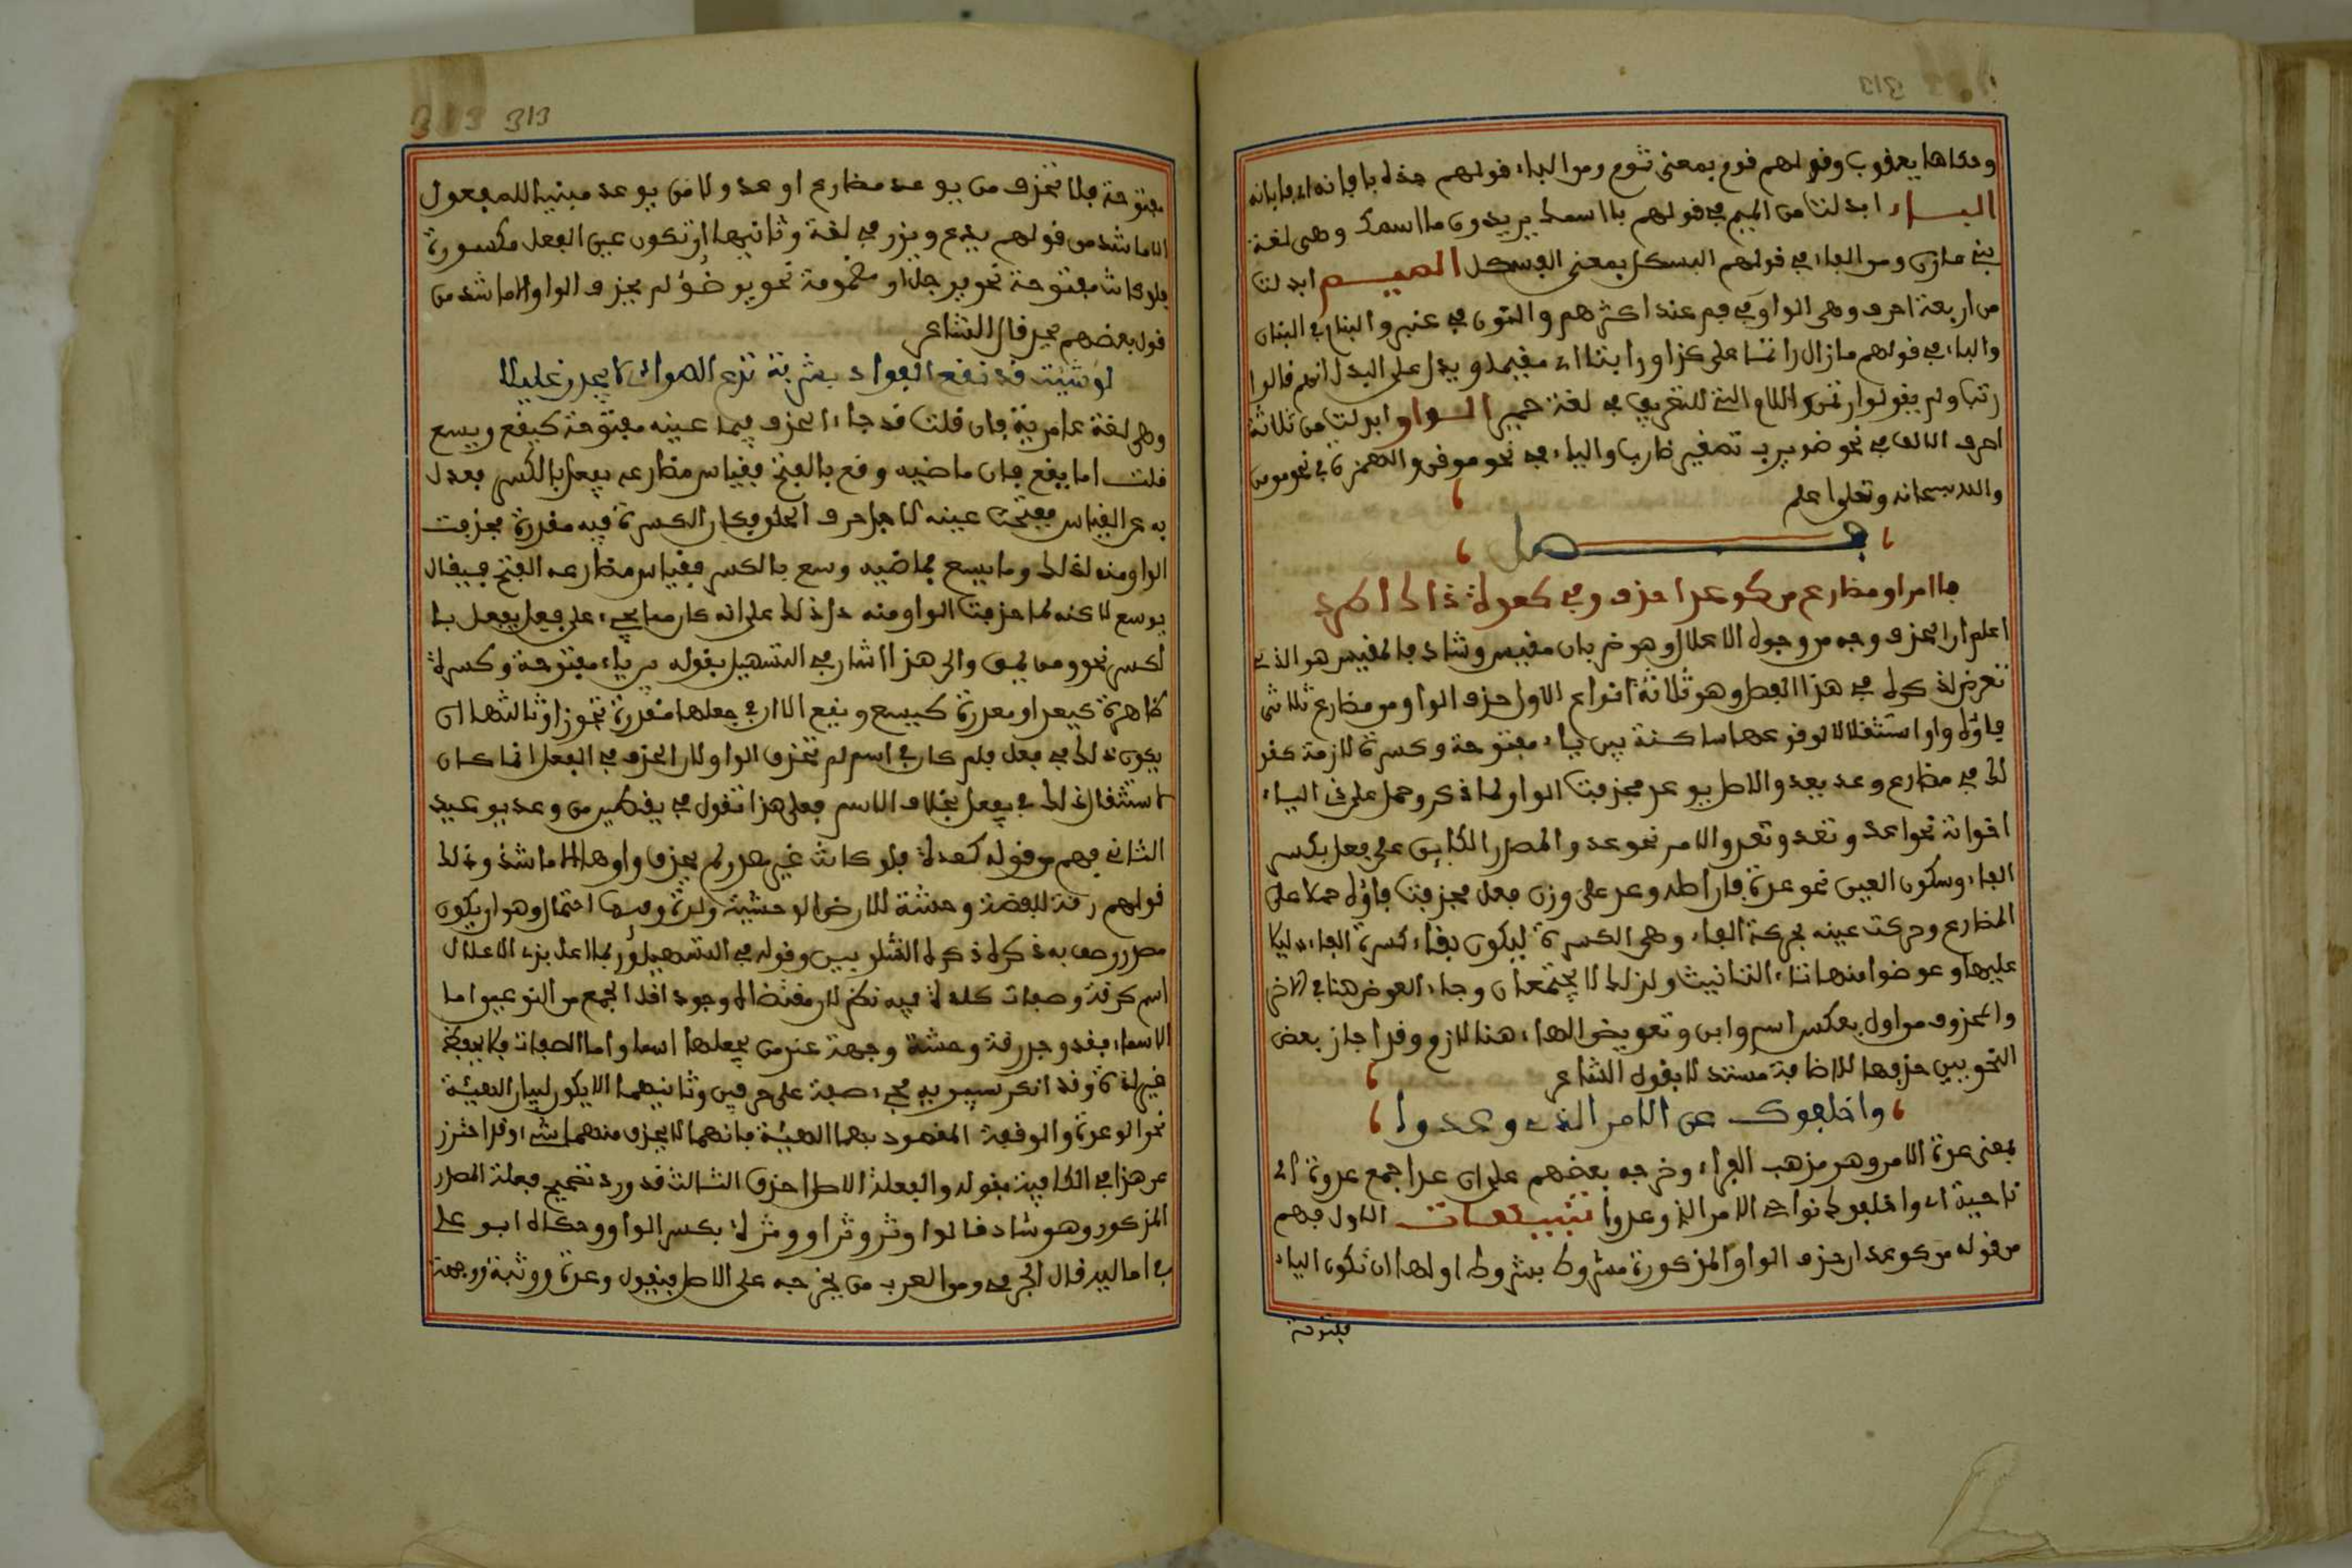 وحكاها يعقوب وقولهم فوم بمعنى ثوم ومن الباء قولهم خذه بافانه اي بابانه
الباء ابدلت من الميم في قولهم باسمك يريدون ما اسمك وهي لغة
بني مازن ومن الفاء في قولهم البسكل بمعنى الفسكل الميم ابدلت
من اربعة احرف وهي الواو في فم عند اكثرهم والنون في عنبر والبنام في البنان
والباء في قولهم مازال راتما على كذا وراتبا اي مقيما ويدل على البدل انهم قالوا
رتب ولم يقولوا رتم واللام التي للتعريف في لغة حمير الواو ابدلت من ثلاثة
احرف الالف في نحو ضويرب تصغير ضارب والياء في نحو موقن والهمزة في نحو مومن
والله سبحانه وتعلى اعلم
فصل
فا امر او مضارع من كوعد احذف وفي كعدة ذاك اطرد
اعلم ان الحذف وجه من وجوه الاعلال وهو ضربان مقيس وشاذ فالمقيس هو الذي
تعرض لذكره في هذا الفصل وهو ثلاثة انواع الاول حذف الواو من مضارع ثلاثي
فاؤه واو استثقالا لوقوعها ساكنة بين ياء مفتوحة وكسرة لازمة كقو
لك في مضارع وعد يعد والاصل يوعد فحذفت الواو لما ذكر وحمل على ذي الياء
اخواته نحو اعد ونعد وتعد والامر نحو عد والمصدر الكاين على فعل بكسر
الفاء وسكون العين نحو عدة فان اصله وعد على وزن فعل فحذفت فاؤه حملا على
المضارع وحركت عينه بحركة الفاء وهي الكسرة ليكون بقاء كسرة الفاء دليلا
عليها وعوضوا منها تاء التانيث ولذلك لا يجتمعان وجاء العوض هنا في الاخر
والمحذوف من اول بعكس اسم وابن وتعويض الهاء هنا لازم وقد اجاز بعض
النحويين حذفها للاضافة مستدلا بقول الشاعر
واخلفوك عن الامر الذي وعدوا
بمعنى عدة الامر وهو مذهب الفراء وخرجه بعضهم على ان عدا جمع عدوة اي
ناحية اي واخلفوك نواحي الامر الذي وعدوا تنبيهات الاول فهم
من قوله من كوعد ان حذف الواو المذكورة مشروط بشروط اولها ان تكون الياء
مفتوحة
313 313
مفتوحة فلا تحذف من يوعد مضارع اوعد ولا من يوعد مبنيا للمفعول
الا ما شذ من قولهم يدع ويذر في لغة وثانيها ان تكون عين الفعل مكسورة
فلو كانت مفتوحة نحو يوجل او مضمومة نحو يوضؤ لم يحذف الواو الا ما شذ من
قول بعضهم يجد قال الشاعر
لو شئت قد نقع الفواد بشربة تدع الهوائم لا يجدن غليلا
وهي لغة عامرية فان قلت قد جاء الحذف فيما عينه مفتوحة كيقع ويسع
قلت اما يقع فان ماضيه وقع بالفتح فقياس مضارعه يفعل بالكسر فعدل
به عن القياس ففتحت عينه لاجل حرف الحلق فكان الكسرة فيه مقدرة فحذفت
الواو منه لذلك وما يسع فماضيه وسع بالكسر فقياس مضارعه الفتح فيقال
يوسع لاكنه لما حذفت الواو منه دل ذلك على انه كان مما يجيء على فعل يفعل با
لكسر نحو ومق يمق والى هذا اشار في التسهيل بقوله بين ياء مفتوحة وكسرة
ظاهرة كيعد او مقدرة كيسع ويقع الا ان في جعلها مقدرة تجوز اوثالثها ان
يكون ذلك في فعل فلو كان في اسم لم تحذف الواو لان الحذف في الفعل انما كان
لاستثقال ذلك في يفعل بخلاف الاسم فعلى هذا تقول في يقطين من وعد يوعيد
الثاني فهم من قوله كعدة فلو كانت غير مصدر لم يحذف واوها الا ما شذ وذلك
قولهم رقة للفضة وحشة للارض الوحشية ولدة وفيها احتمال وهو ان يكون
مصدر وصف به ذكره ذكره الشلوبيين وقوله في التسهيل وربما اعل بذا الاعلال
اسم كرقة وصفات كلدة فيه نظر لان مقتضاه وجود اقل الجمع من النوعين اما
الاسماء فقد وجد رقة وحشة وجهة عند من يجعلها اسما واما الصفات فلا يحفظ
غير لدة وقد انكر سيبويه مجيء صفة على حرفين وثانيهما الا يكون لبيان الهيئة
نحو الوعدة والوقفة المقصود بهما الهيئة فانهما لا يحذف منهما شيء وقد احترز
عن هذا في الكافية بقوله والفعلة الاصل احذف الثالث قد ورد تصحيح فعلة المصدر
المذكور وهو شاذ قالوا وتر وترا ووترة بكسر الواو وحكاه ابو علي
في اماليه قال الجرمي ومن العرب من يخرجه على الاصل فيقول وعدة ووثبة ووجهة